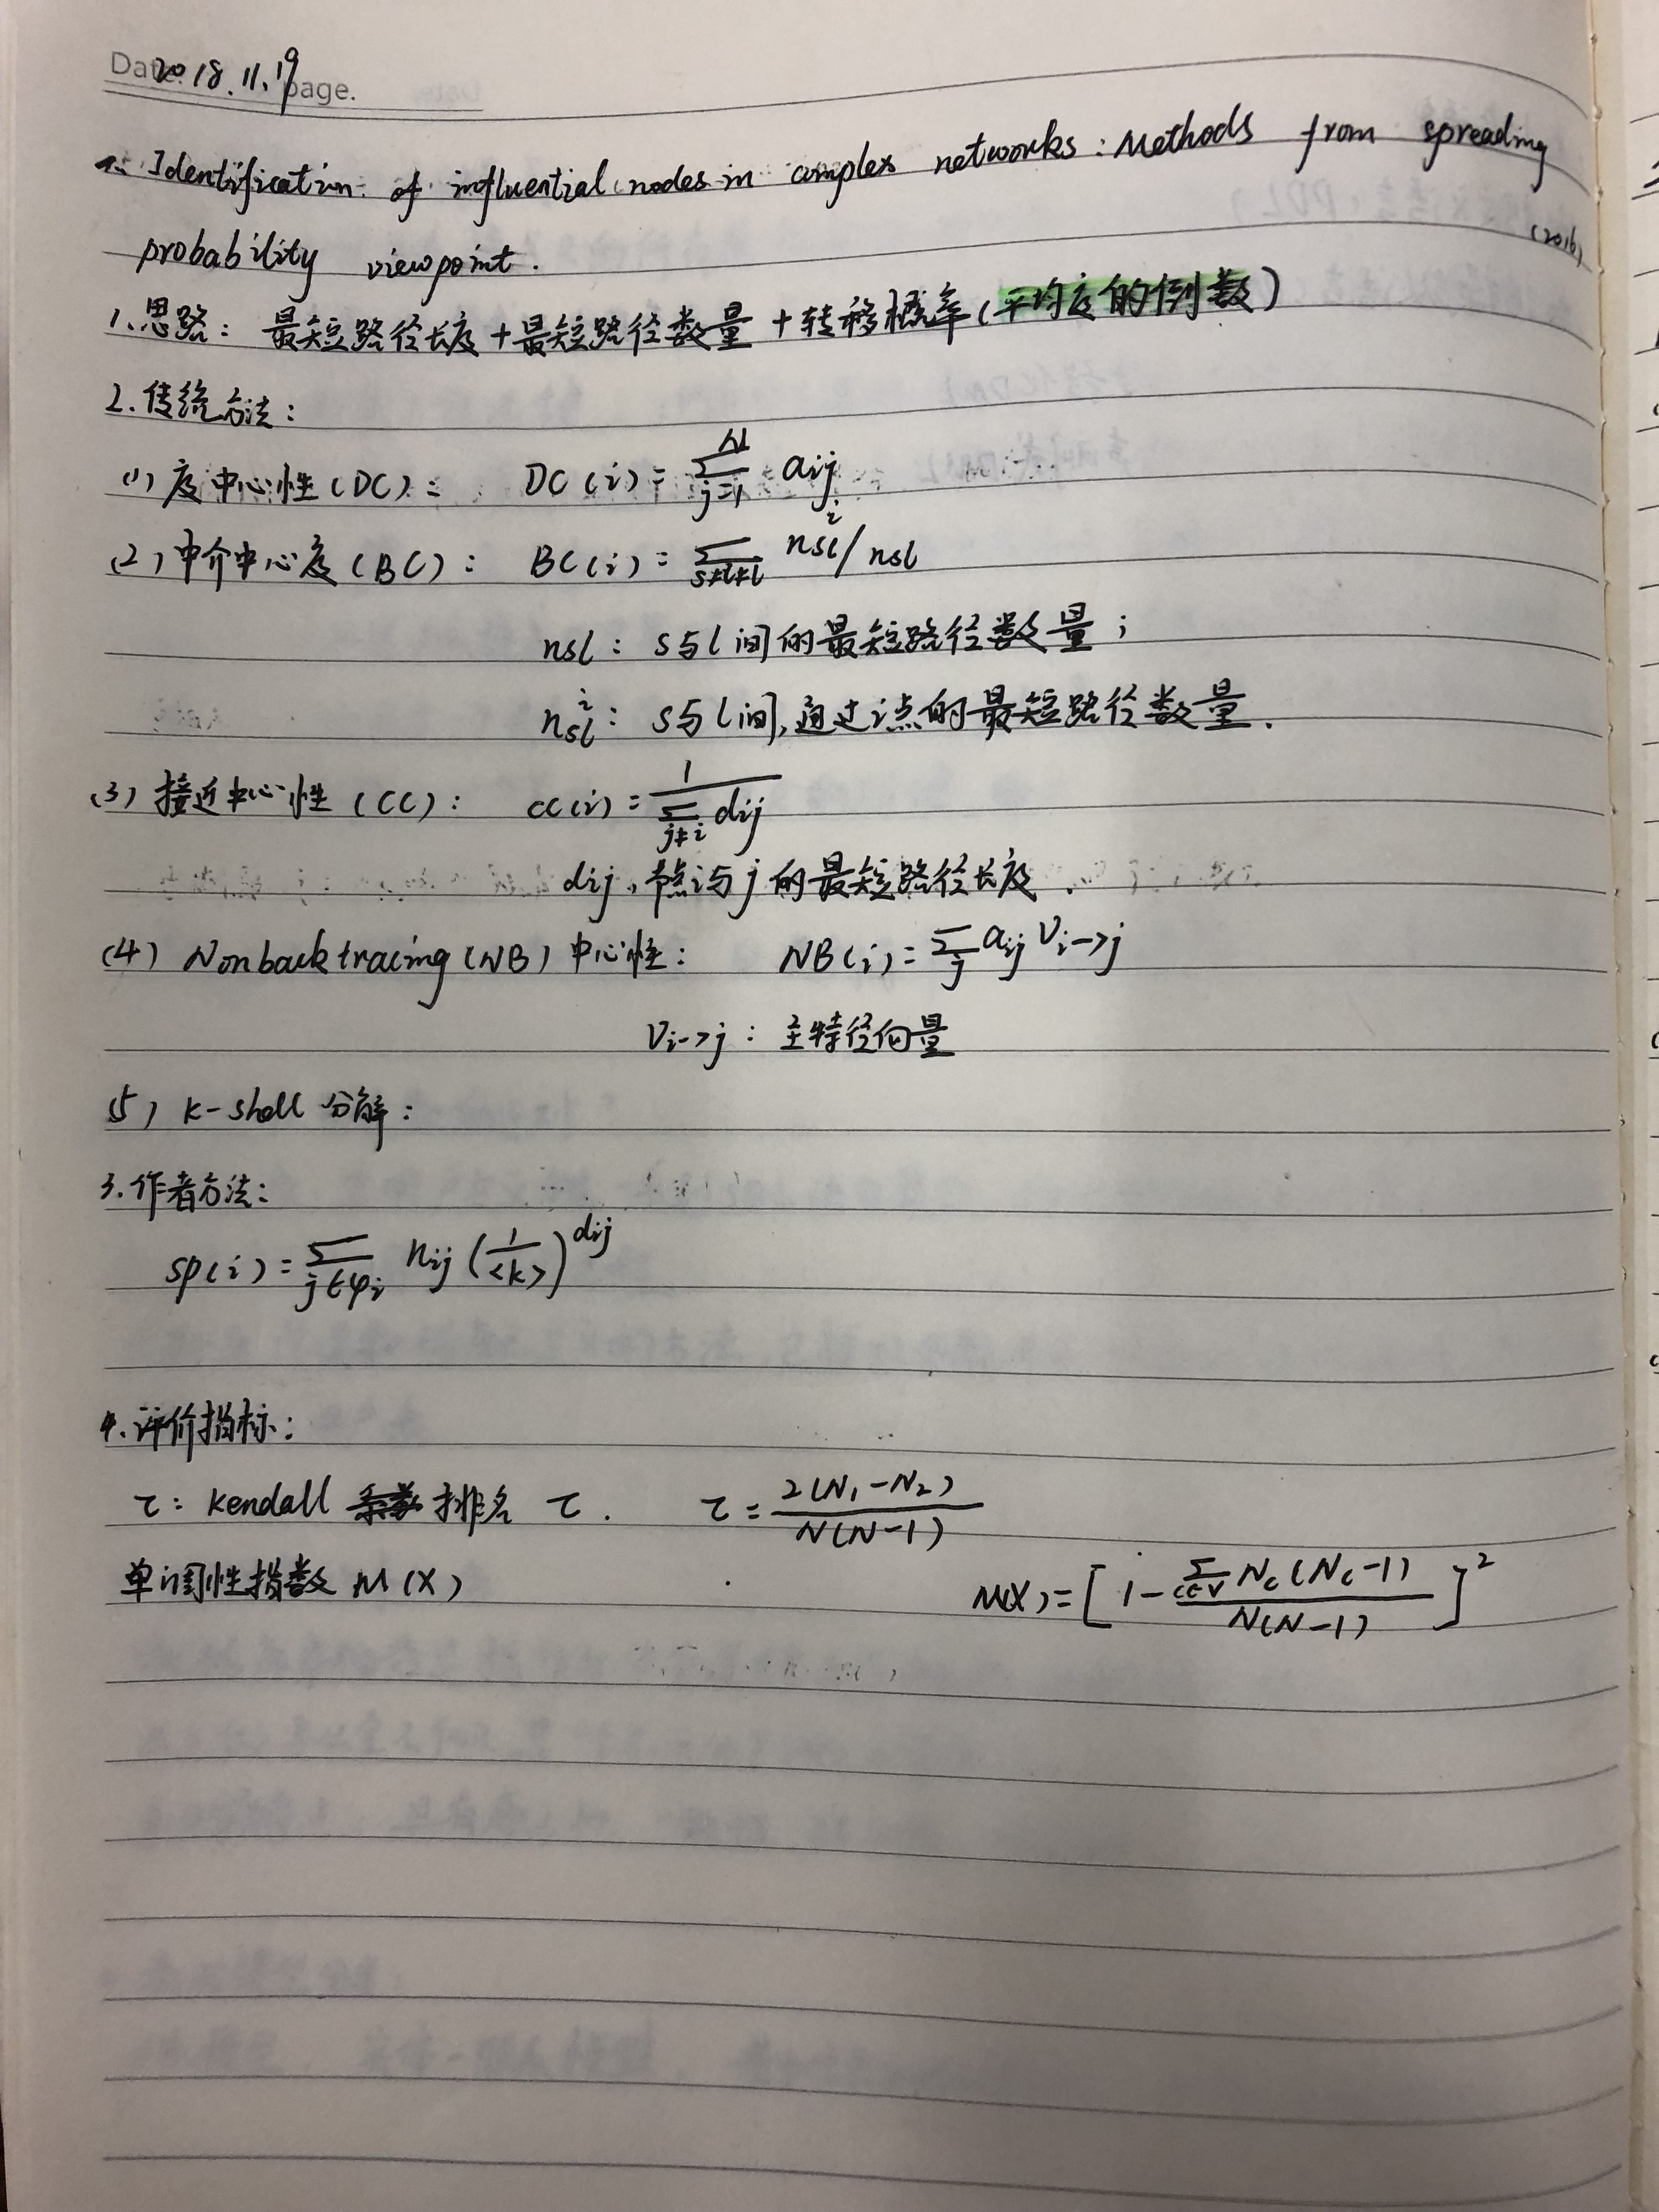 Date. 2018.11.19 page.
1. Identification of influential nodes in complex networks: Methods from spreading
probability viewpoint. (2016)
1.思路: 最短路径长度+最短路径数量+转移概率(平均度的倒数)
2.传统方法:
(1)度中心性(DC): DC(i)=∑_{j=1}^{N} aij
(2)中介中心度(BC): BC(i)=∑_{s≠i≠l} n_{sl}^{i}/n_{sl}
nsl: s与l间的最短路径数量;
n_{sl}^{i}: s与l间,通过i点的最短路径数量.
(3)接近中心性(CC): CC(i)=1/∑_{j≠i} dij
dij,节点i与j的最短路径长度.
(4) Nonbacktracing(NB)中心性: NB(i)=∑_{j} aij V_{i->j}
V_{i->j}: 主特征向量
(5) k-shell 分解:
3.作者方法:
sp(i)=∑_{j∈φi} nij (1/<k>)^{dij}
4.评价指标:
τ: Kendall 排名 τ. τ=2(N₁-N₂)/N(N-1)
单调性指数 M(X) M(X)=[1-∑_{c∈V} Nc(Nc-1)/N(N-1)]²